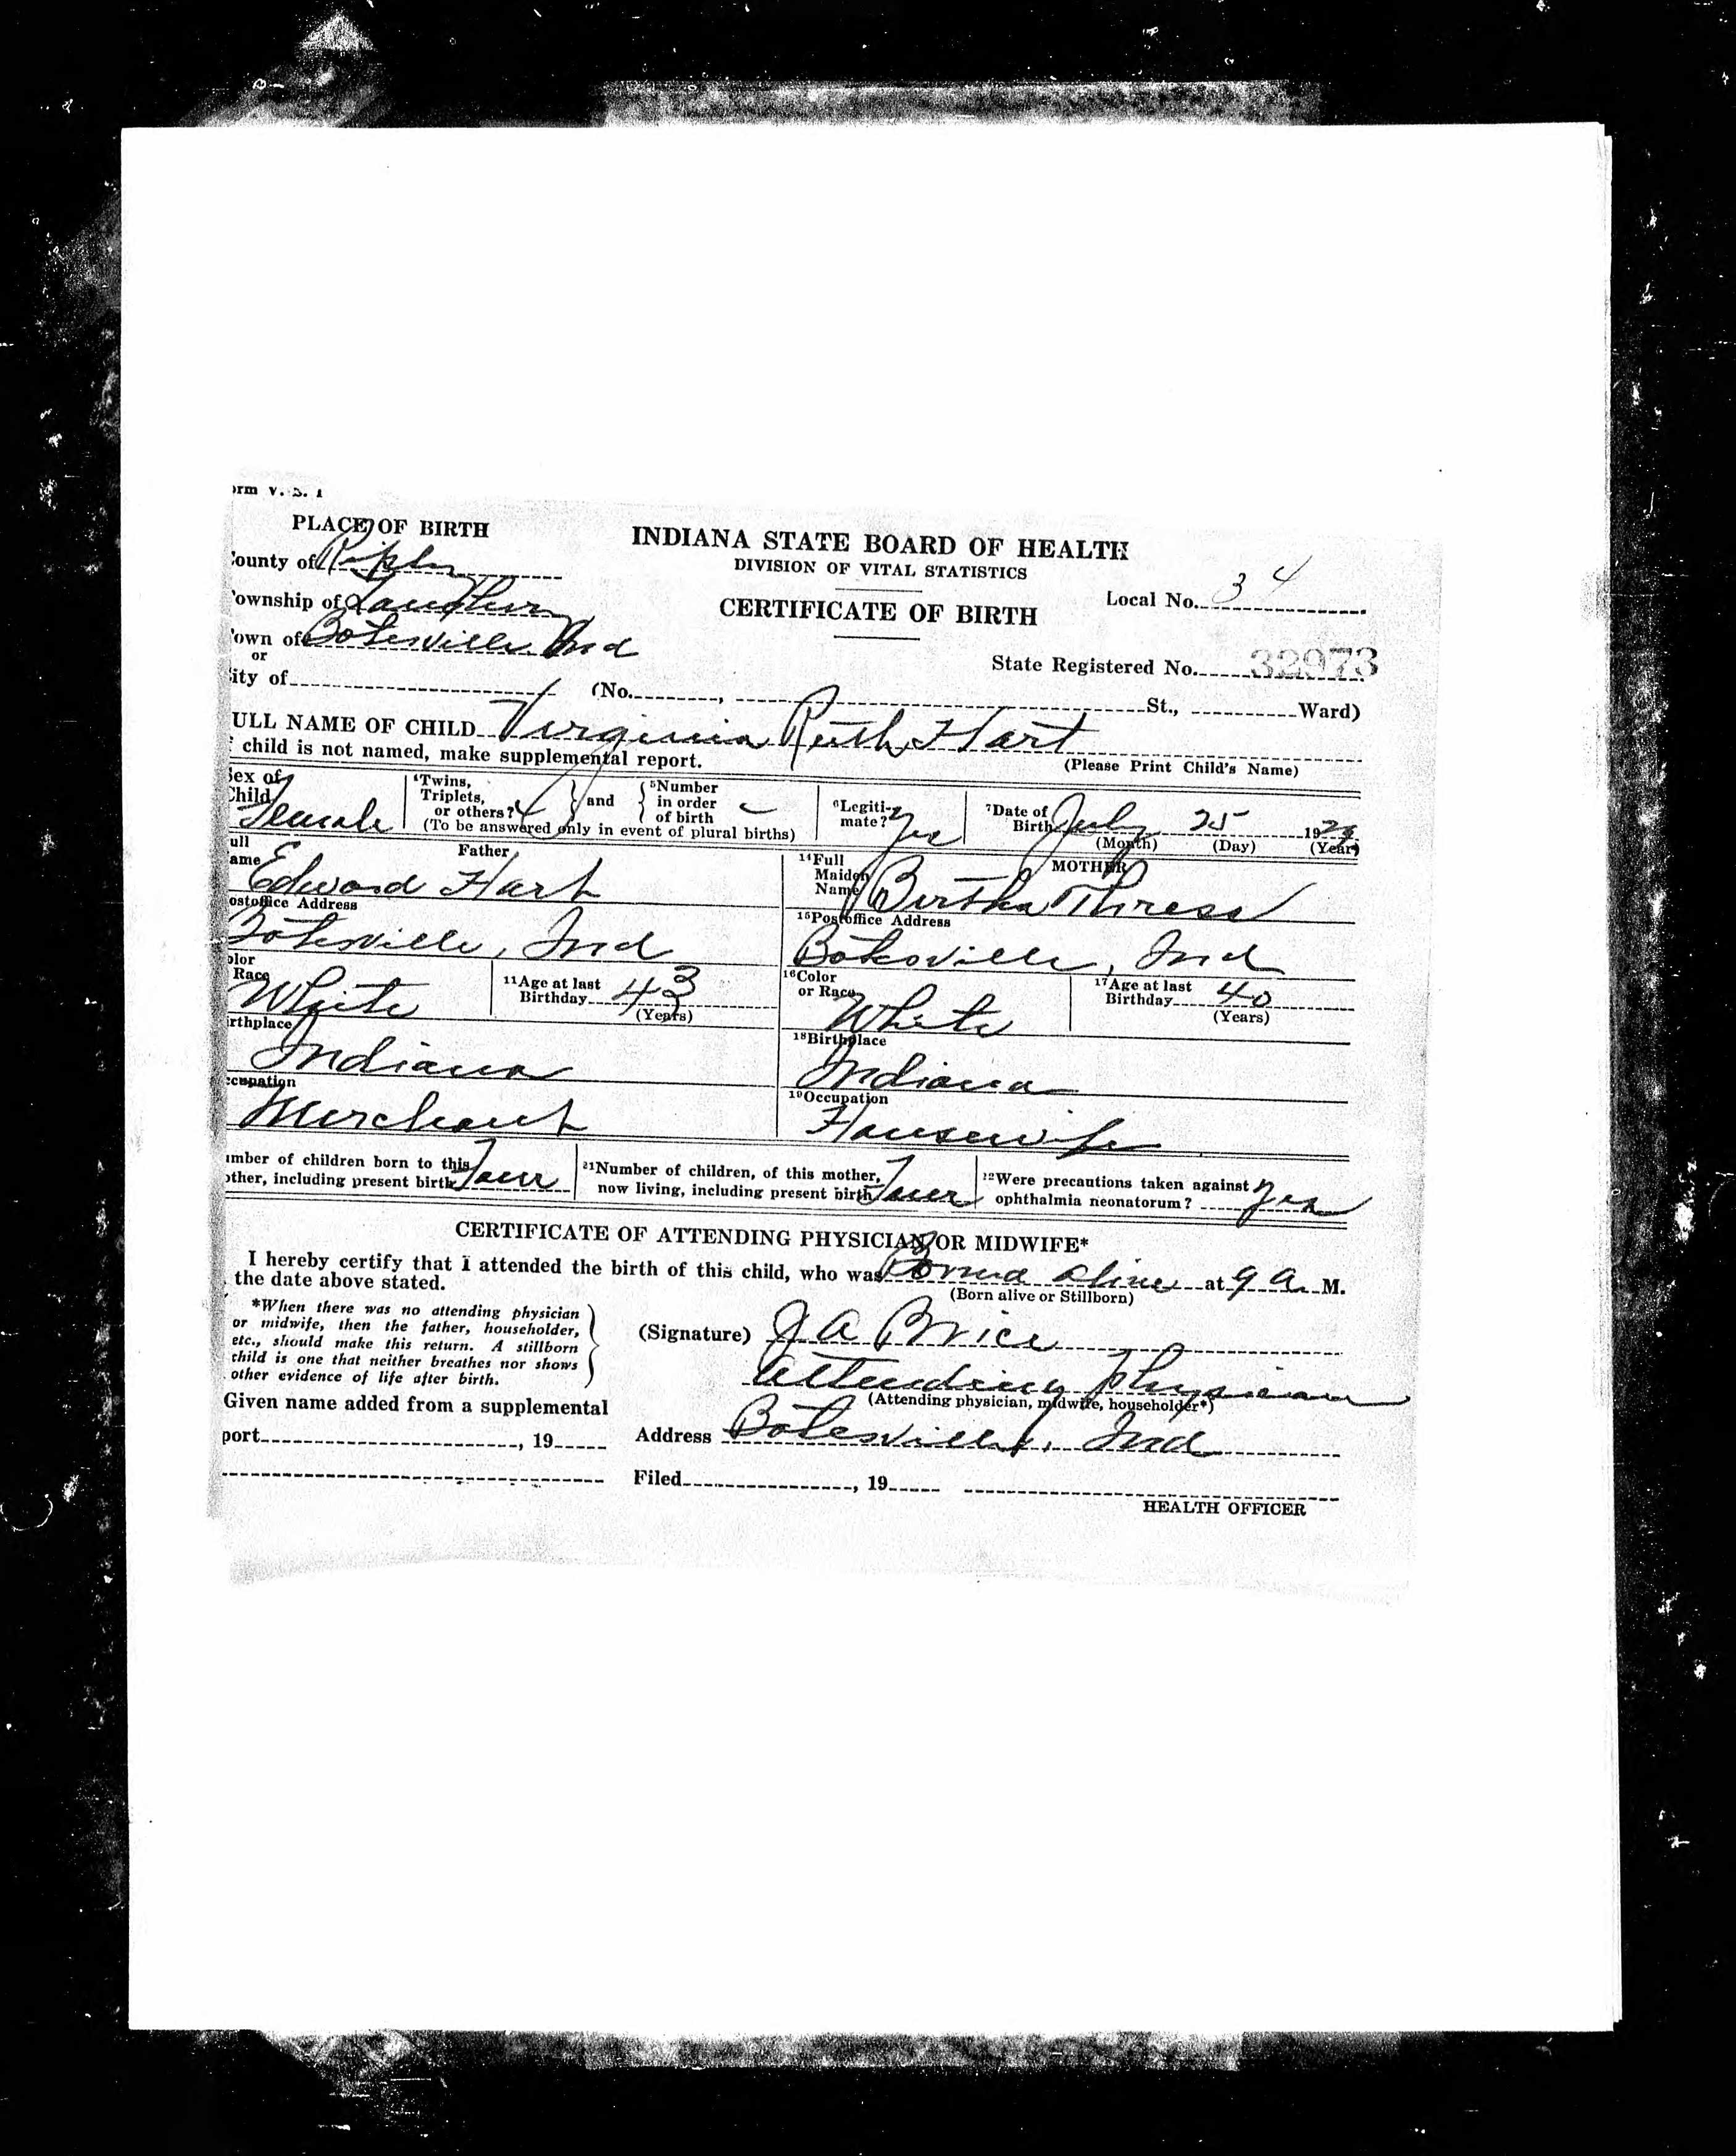 orm V. S. 1
PLACE OF BIRTH
INDIANA STATE BOARD OF HEALTH
DIVISION OF VITAL STATISTICS
CERTIFICATE OF BIRTH
County of Ripley
Township of Laughery
Local No. 34
Town of Batesville Ind
or
City of (No. , St., Ward)
State Registered No. 32973
FULL NAME OF CHILD Virginia Ruth Hart
f child is not named, make supplemental report. (Please Print Child's Name)
Sex of Child Female
4Twins, Triplets, or others? and 5Number in order of birth –
(To be answered only in event of plural births)
6Legiti-mate? Yes
7Date of Birth July 25 192
(Month) (Day) (Year)
Father
ull ame Edward Hart
ostoffice Address
Batesville, Ind
olor Race White
11Age at last Birthday 43
(Years)
irthplace
Indiana
ccupation
Merchant
MOTHER
14Full Maiden Name Bertha Thress
15Postoffice Address
Batesville, Ind
16Color or Race White
17Age at last Birthday 40
(Years)
18Birthplace
Indiana
19Occupation
Housewife
umber of children born to this
other, including present birth Four
21Number of children, of this mother,
now living, including present birth Four
22Were precautions taken against
ophthalmia neonatorum? Yes
CERTIFICATE OF ATTENDING PHYSICIAN OR MIDWIFE*
I hereby certify that I attended the birth of this child, who was Born alive at 9 a M.
the date above stated. (Born alive or Stillborn)
*When there was no attending physician
or midwife, then the father, householder,
etc., should make this return. A stillborn
child is one that neither breathes nor shows
other evidence of life after birth.
(Signature) J A Brice
Attending Physician
(Attending physician, midwife, householder*)
Given name added from a supplemental
port , 19
Address Batesville, Ind
Filed , 19
HEALTH OFFICER